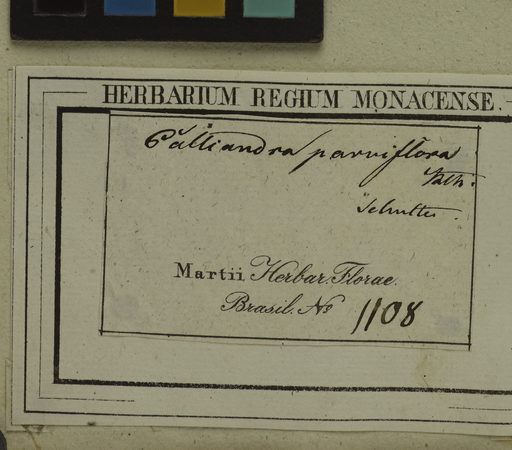 HERBARIUM REGIUM MONACENSE.
Calliandra parviflora
Bth.
Schultes.
Martii Herbar. Florae
Brasil. No 1108